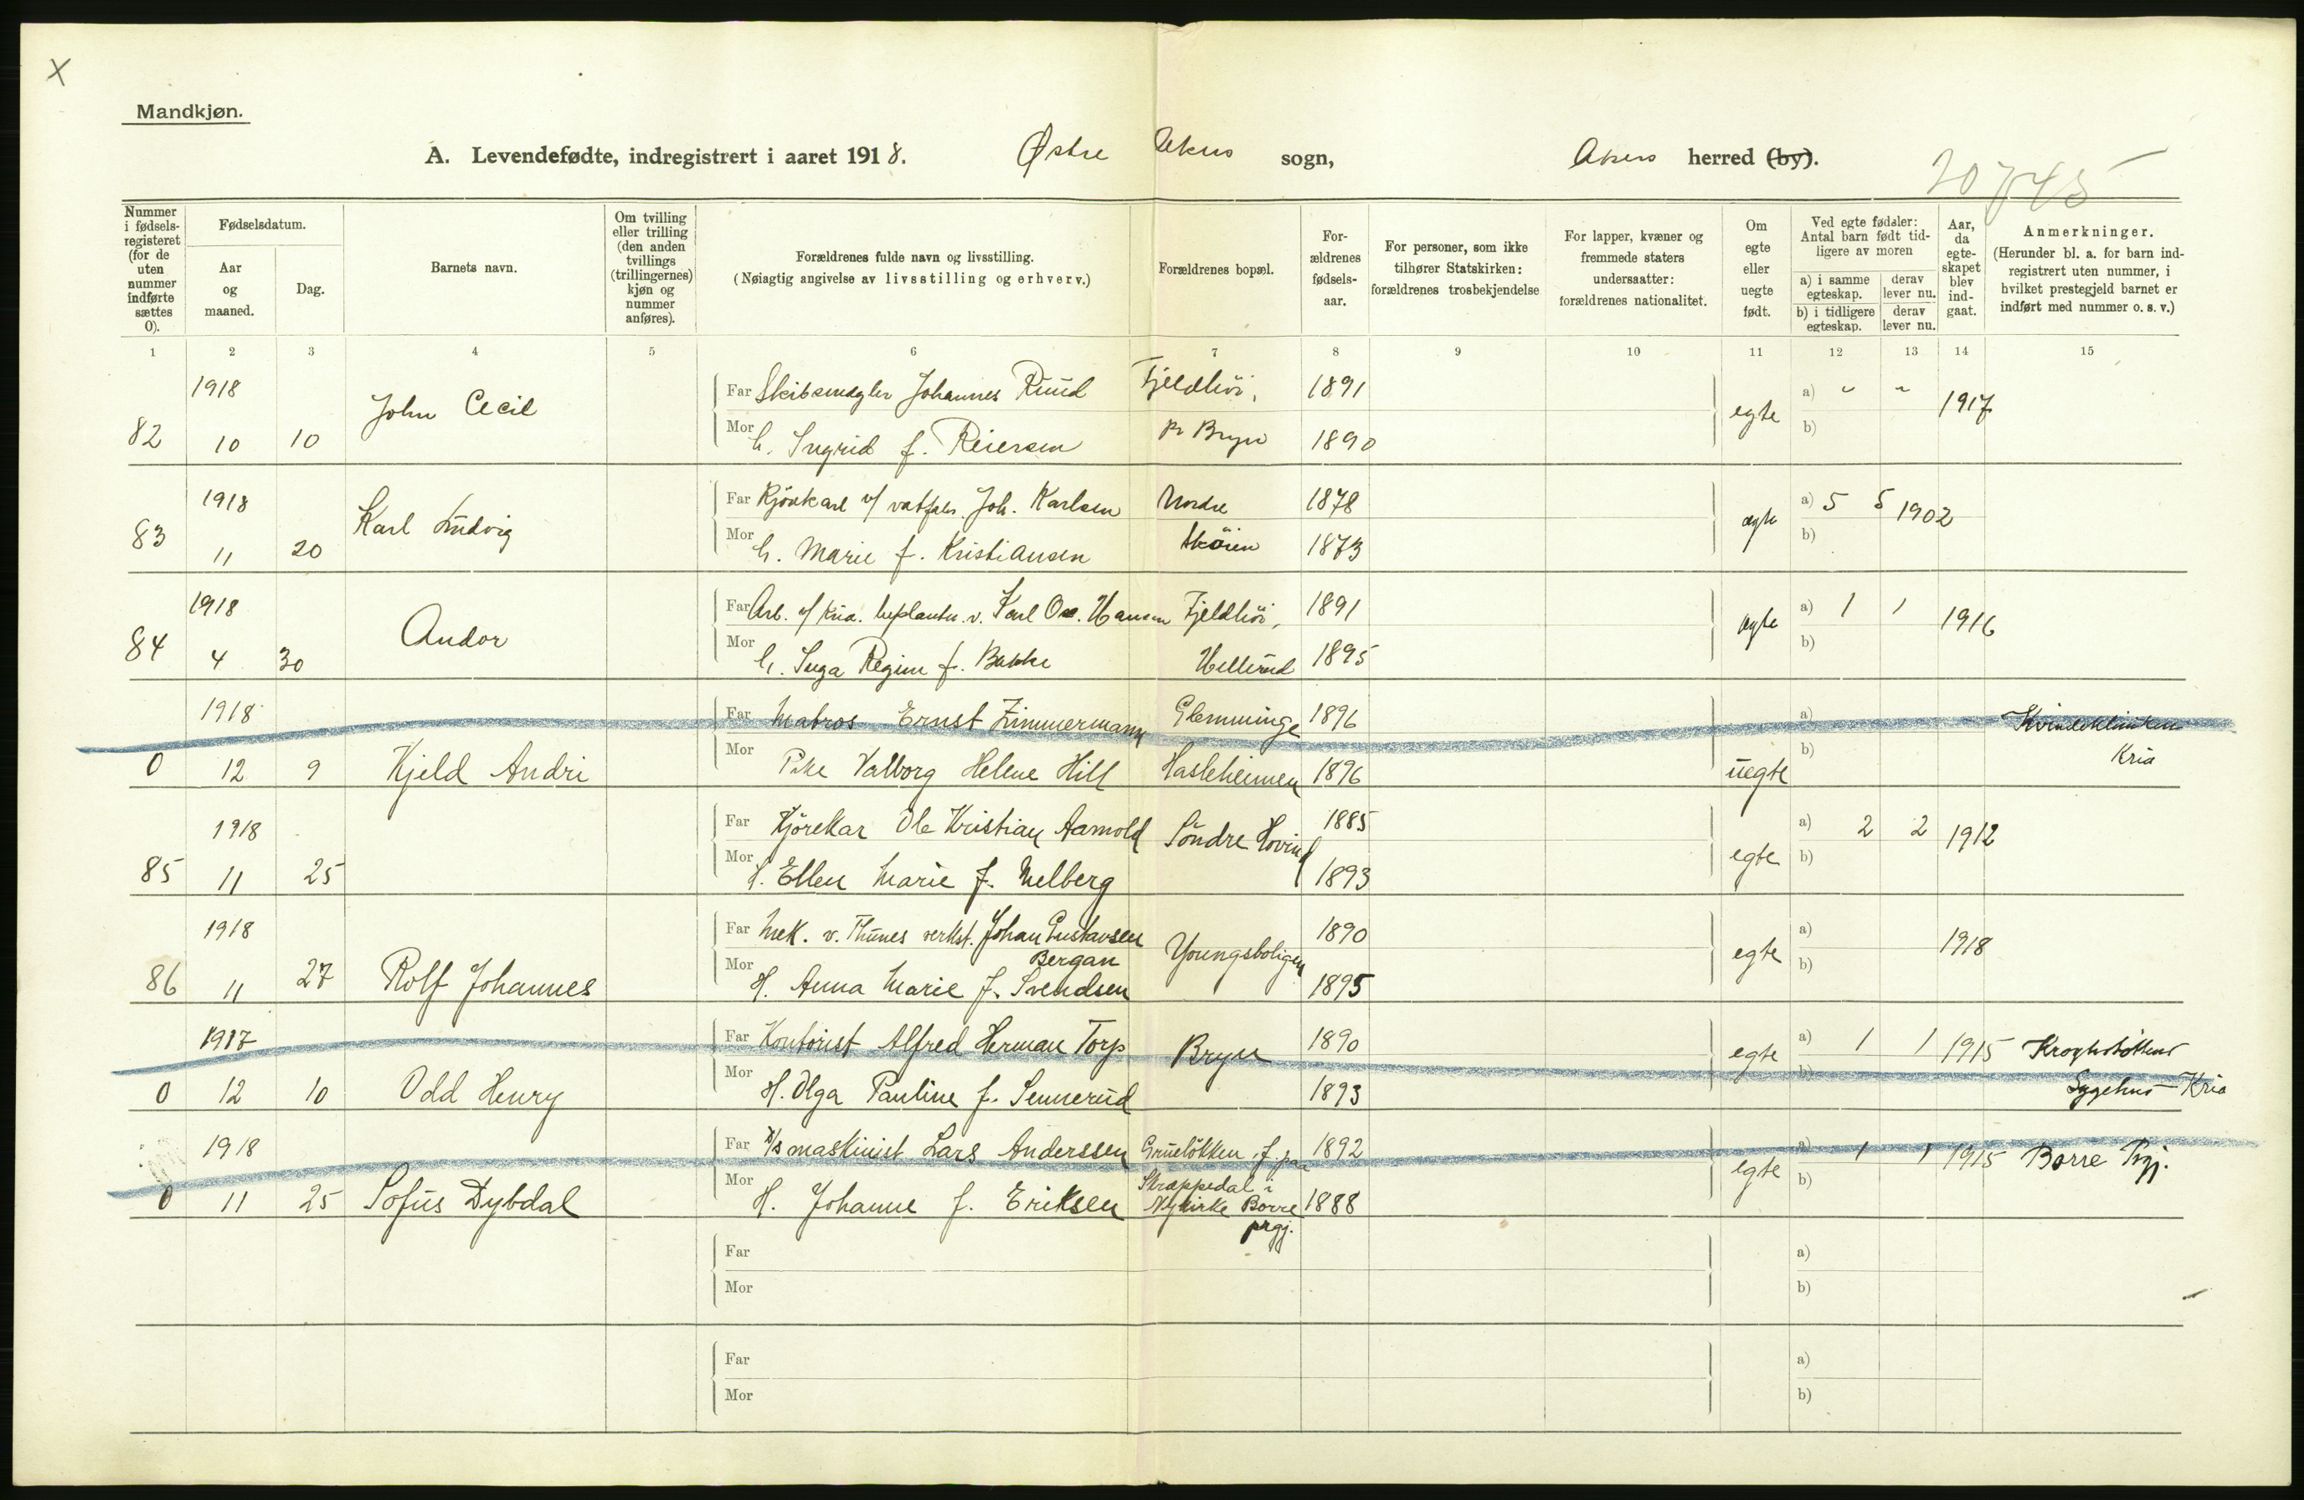 X
Mandkjøn.
A. Levendefødte, indregistrert i aaret 1918. Østre Akers sogn, Akers herred (by).
20745
Nummer i fødsels-registeret (for de uten nummer indførte sættes 0).
Fødselsdatum.
Aar og maaned.
Dag.
Barnets navn.
Om tvilling eller trilling (den anden tvillings (trillingernes) kjøn og nummer anføres).
Forældrenes fulde navn og livsstilling.
(Nøiagtig angivelse av livsstilling og erhverv.)
Forældrenes bopæl.
For-ældrenes fødsels-aar.
For personer, som ikke tilhører Statskirken: forældrenes trosbekjendelse
For lapper, kvæner og fremmede staters undersaatter: forældrenes nationalitet.
Om egte eller uegte født.
Ved egte fødsler: Antal barn født tid-ligere av moren
a) i samme egteskap.
derav lever nu.
b) i tidligere egteskap.
derav lever nu.
Aar, da egte-skapet blev ind-gaat.
Anmerkninger.
(Herunder bl. a. for barn ind-registrert uten nummer, i hvilket prestegjeld barnet er indført med nummer o. s. v.)
1 2 3 4 5 6 7 8 9 10 11 12 13 14 15
1918 Far Skibsmægler Johannes Ruud Fjeldhöi, 1891 a) " "
82 10 10 John Cecil Mor h. Ingrid f. Reiersen pr Bryn 1890 egte b) 1917
1918 Far Kjörekarl v/ vatfabr. Joh. Karlsen Nordre 1878 a) 5 5 1902
83 11 20 Karl Ludvig Mor h. Marie f. Kristiansen Sköien 1873 egte b)
1918 Far Arb. v/ Kria. beplantn. v. Karl O. Hansen Fjeldhöi, 1891 a) 1 1
84 4 30 Andor Mor h. Inga Regine f. Bakke Hellerud 1895 egte b) 1916
1918 Far Matros Ernst Zimmermann Glemminge 1896 a) Kvindeklinikken
0 12 9 Kjeld Andri Mor Pike Valborg Helene Hill Hasleheimen 1896 uegte b) Kria
1918 Far Kjörekar Ole Kristian Aamold Söndre Hovind 1885 a) 2 2 1912
85 11 25 Mor H. Ellen Marie f. Melberg 1893 egte b)
1918 Far Mek. v. Thunes verkst. Johan Gustavsen Bergan Youngsboligen 1890 a) 1918
86 11 27 Rolf Johannes Mor H. Anna Marie f. Svendsen 1895 egte b)
1917 Far Kontorist Alfred Herman Torp Bryn 1890 egte a) 1 1 1915 Kroghstöttens
0 12 10 Odd Henry Mor H. Olga Pauline f. Sennerud 1893 b) Sygehus Kria
1918 Far maskinist Lars Anderssen Gruelökken, f. paa 1892 a) 1 1 1915 Borre Prgj.
0 11 25 Sofus Dybdal Mor H. Johanne f. Eriksen Skræppedal i Nykirke Borre prgj. 1888 egte b)
Far a)
Mor b)
Far a)
Mor b)